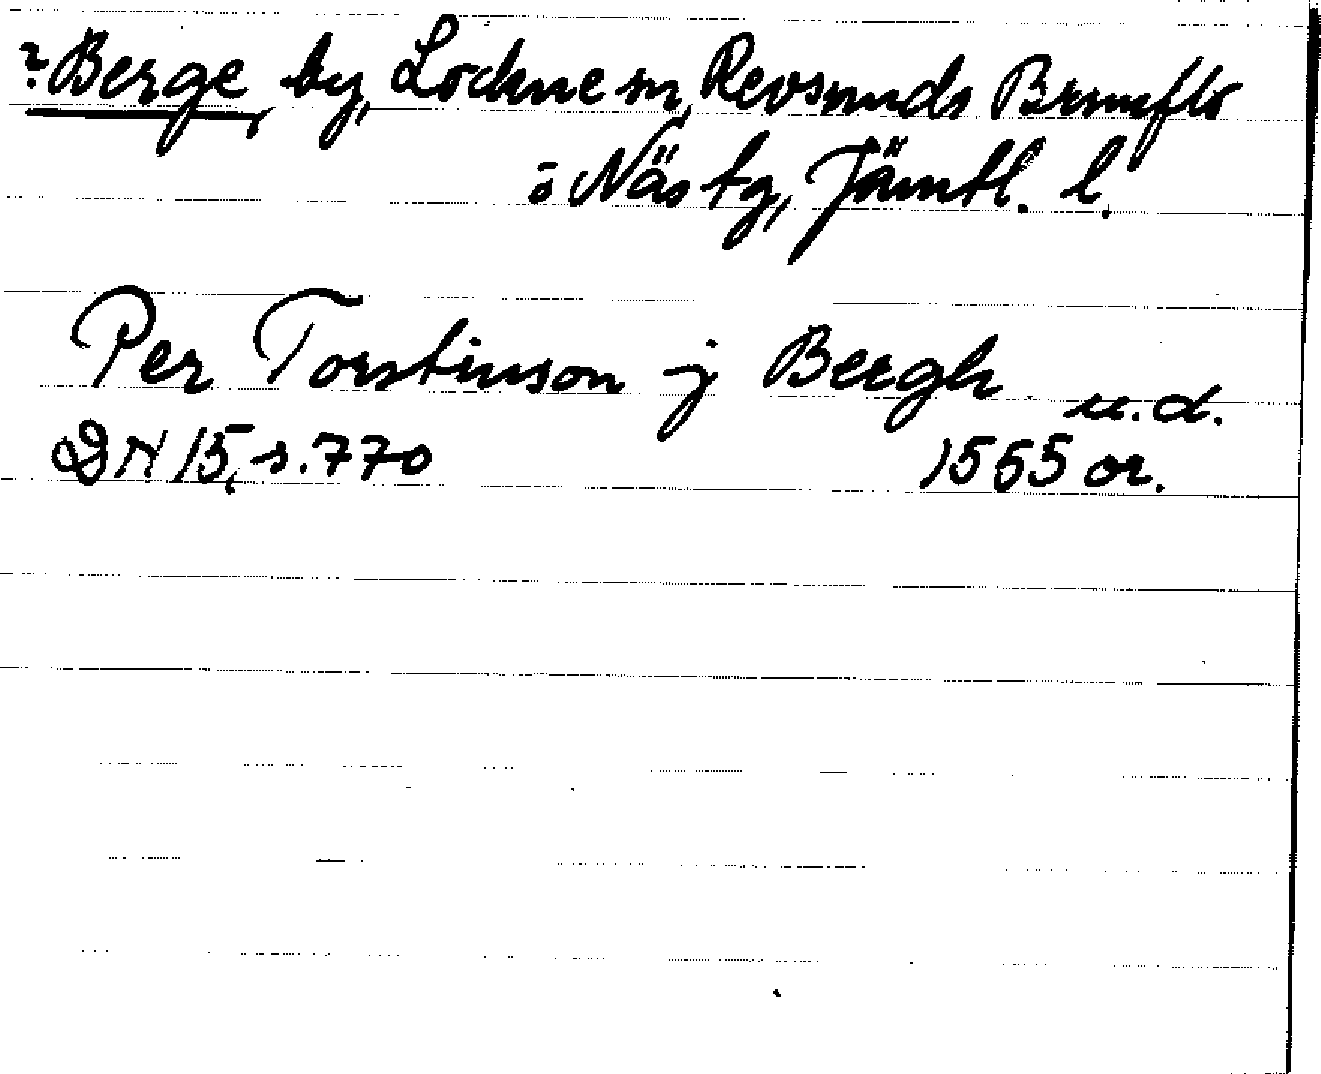 ?Berge, by, Lockne sn, Revsunds Brunflo
o Näs tg, Jämtl. l.
Per Torstinson j Bergh u.d.
DN 15, s. 770 1565 or.